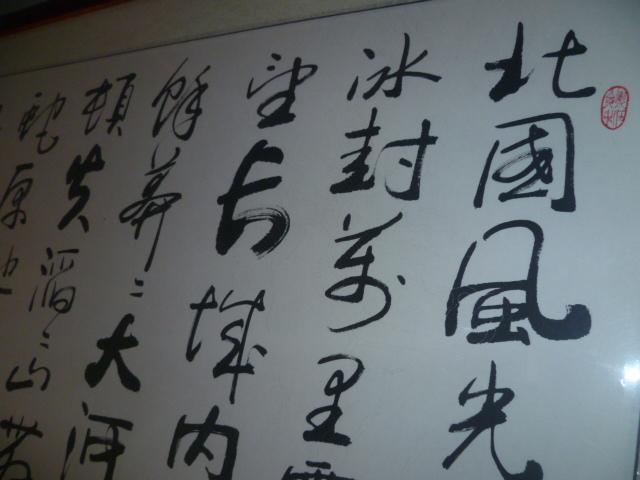 北國風光
冰封萬里
望长城内
餘莽〻大河
頓失滔〻山舞
蛇原